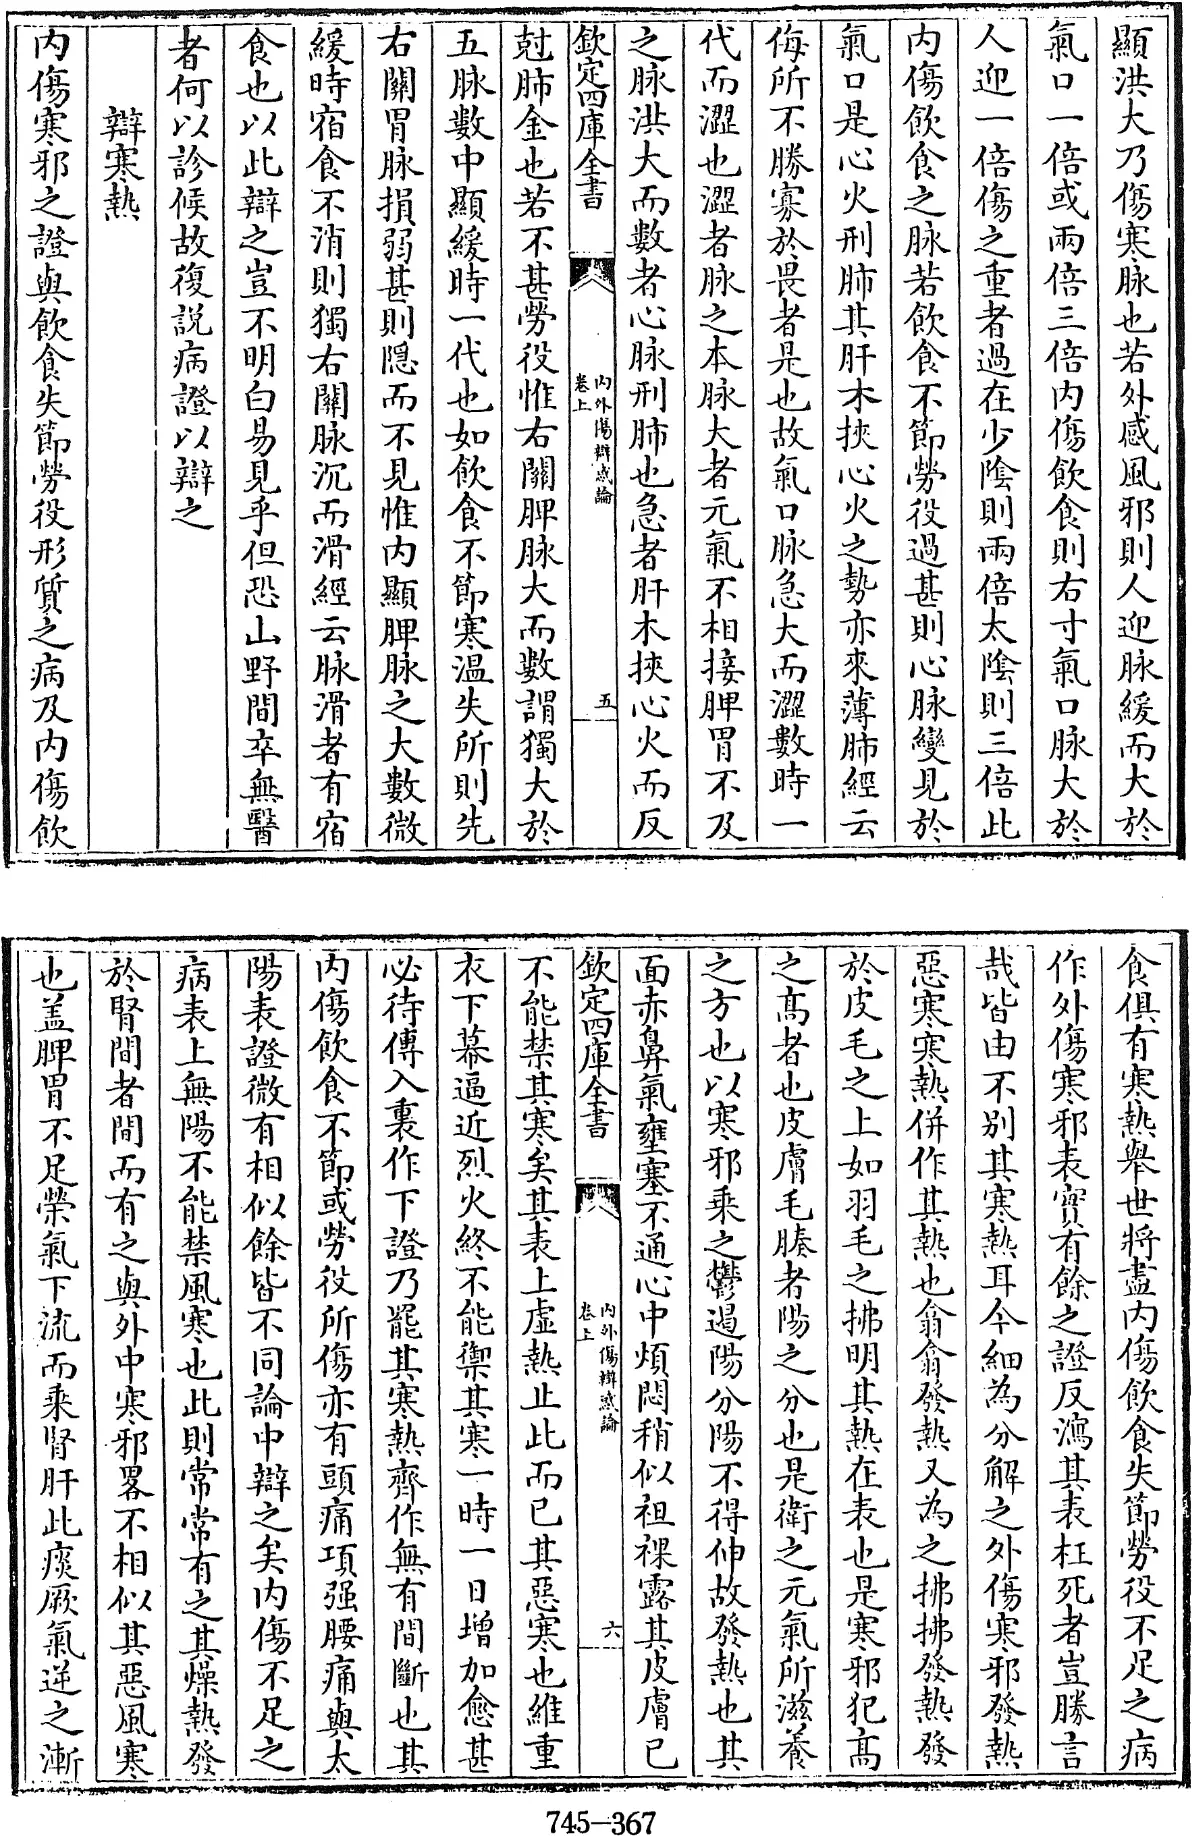 顯洪大乃傷寒脉也若外感風邪則人迎脉緩而大於
氣口一倍或兩倍三倍内傷飲食則右寸氣口脉大於
人迎一倍傷之重者過在少陰則兩倍太陰則三倍此
内傷飲食之脉若飲食不節勞役過甚則心脉變見於
氣口是心火刑肺其肝木挾心火之勢亦來薄肺經云
侮所不勝寡於畏者是也故氣口脉急大而澀數時一
代而澀也澀者脉之本脉大者元氣不相接脾胃不及
之脉洪大而數者心脉刑肺也急者肝木挾心火而反
欽定四庫全書
内外傷辯惑論
卷上
五
尅肺金也若不甚勞役惟右關脾脉大而數謂獨大於
五脉數中顯緩時一代也如飲食不節寒温失所則先
右關胃脉損弱甚則隱而不見惟内顯脾脉之大數微
緩時宿食不消則獨右關脉沉而滑經云脉滑者有宿
食也以此辯之豈不明白易見乎但恐山野間卒無醫
者何以診候故復説病證以辯之
辯寒熱
内傷寒邪之證與飲食失節勞役形質之病及内傷飲
食俱有寒熱舉世將盡内傷飲食失節勞役不足之病
作外傷寒邪表實有餘之證反瀉其表枉死者豈勝言
哉皆由不别其寒熱耳今細為分解之外傷寒邪發熱
惡寒寒熱併作其熱也翕翕發熱又為之拂拂發熱發
於皮毛之上如羽毛之拂明其熱在表也是寒邪犯髙
之髙者也皮膚毛腠者陽之分也是衛之元氣所滋養
之方也以寒邪乘之鬱遏陽分陽不得伸故發熱也其
面赤鼻氣壅塞不通心中煩悶稍似袒裸露其皮膚已
欽定四庫全書
内外傷辯惑論
卷上
六
不能禁其寒矣其表上虚熱止此而已其惡寒也維重
衣下幕逼近烈火終不能禦其寒一時一日增加愈甚
必待傳入裏作下證乃罷其寒熱齊作無有間斷也其
内傷飲食不節或勞役所傷亦有頭痛項强腰痛與太
陽表證微有相似餘皆不同論中辯之矣内傷不足之
病表上無陽不能禁風寒也此則常常有之其燥熱發
於腎間者間而有之與外中寒邪畧不相似其惡風寒
也蓋脾胃不足榮氣下流而乘腎肝此痿厥氣逆之漸
745-367